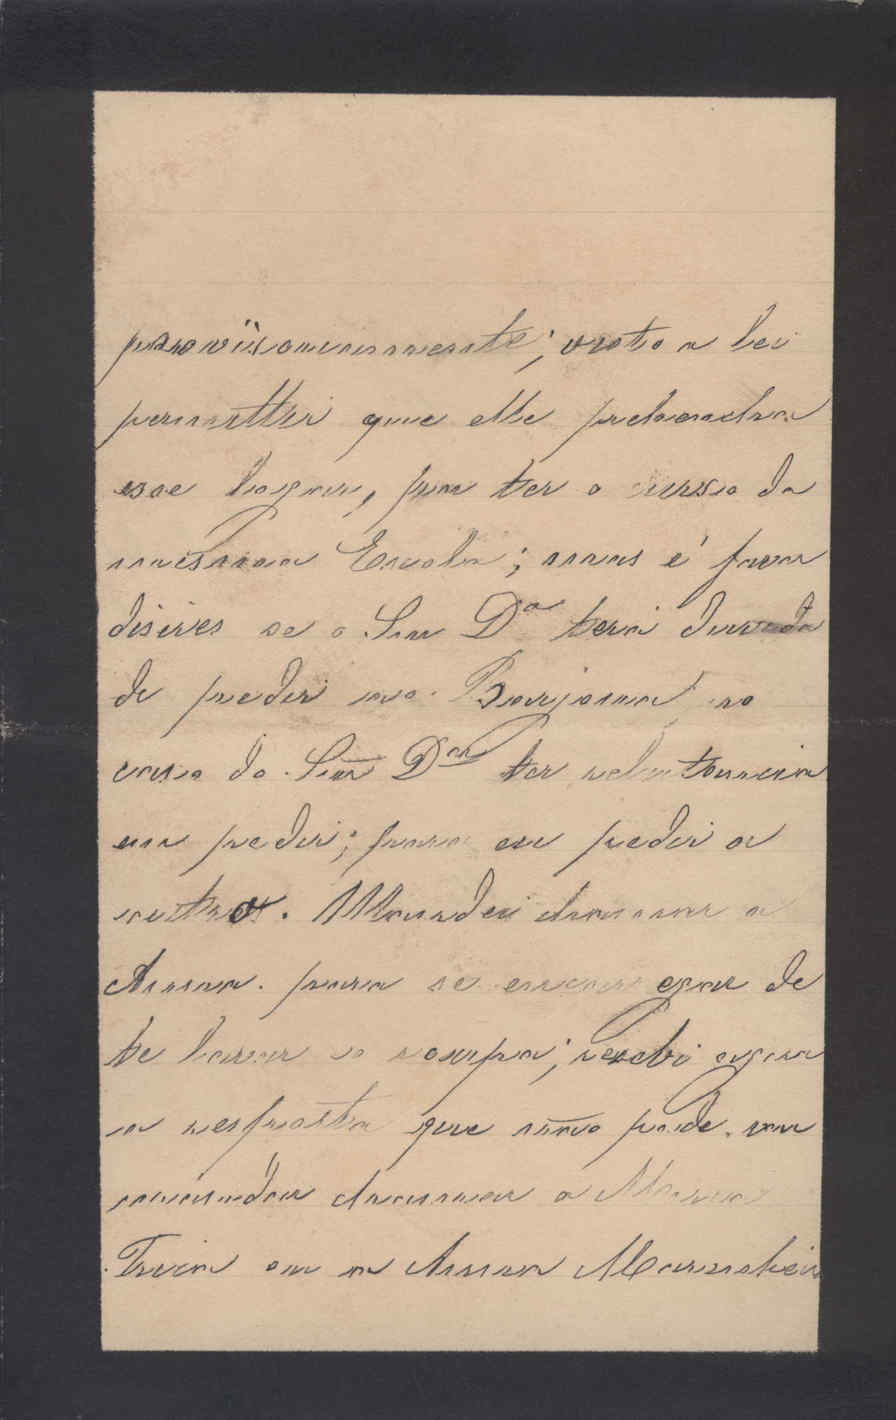 provisoriamente; visto a lei
permittir que elle prehencha
esse logar, por ter o curso da
mesma Escola; mas é favor
diseres se o Snr Dor terá duvida
de pedir ao Borjona no
caso do Snr Dor ter relutancia
em pedir; para eu pedir a
outros. Mandei chamar a
Anna para se encarregar de
te lavar a roupa; recebi agora
a resposta que não póde, vou
mandar chamar a Maria
ou a Anna